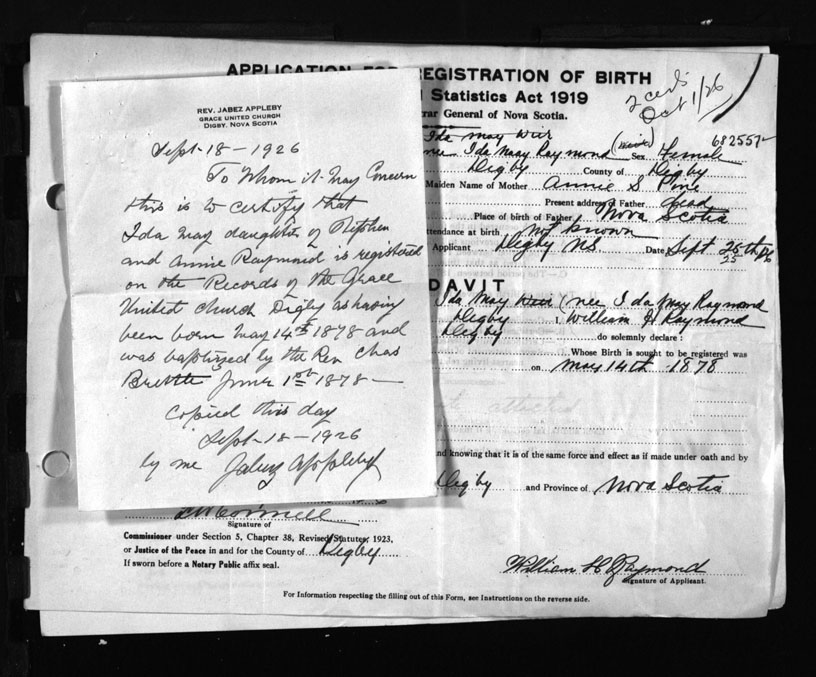 REV. JABEZ APPLEBY
GRACE UNITED CHURCH
DIGBY, NOVA SCOTIA
Sept-18-1926
To Whom it May Concern
this is to certify that
Ida May daughter of Stephen
and Annie Raymond is registered
on the Records of the Grace
United Church Digby as having
been born May 14th 1878 and
was baptized by the Rev. Chas
June 1st 1878-
Copied this day
Sept-18-1926
by me Jabez Appleby
APPLICATION FOR REGISTRATION OF BIRTH
Statistics Act 1919
rar General of Nova Scotia.
2 certs
Oct 1/26
682557
Ida May Weir
nee Ida May Raymond Sex Female
Digby County of Digby
Maiden Name of Mother Annie S
Present address of Father dead
Place of birth of Father Nova Scotia
ttendance at birth not known
Applicant Digby NS Date Sept 25th
25
DAVIT
Ida May (nee Ida May Raymond
Digby I, William H Raymond
Digby do solemnly declare:
Whose Birth is sought to be registered was
on May 14th 1878
attached
nd knowing that it is of the same force and effect as if made under oath and by
Digby and Province of Nova Scotia
Signature of
Commissioner under Section 5, Chapter 38, Revised Statutes, 1923,
or Justice of the Peace in and for the County of Digby
If sworn before a Notary Public affix seal.
William H Raymond
Signature of Applicant.
For Information respecting the filling out of this Form, see Instructions on the reverse side.